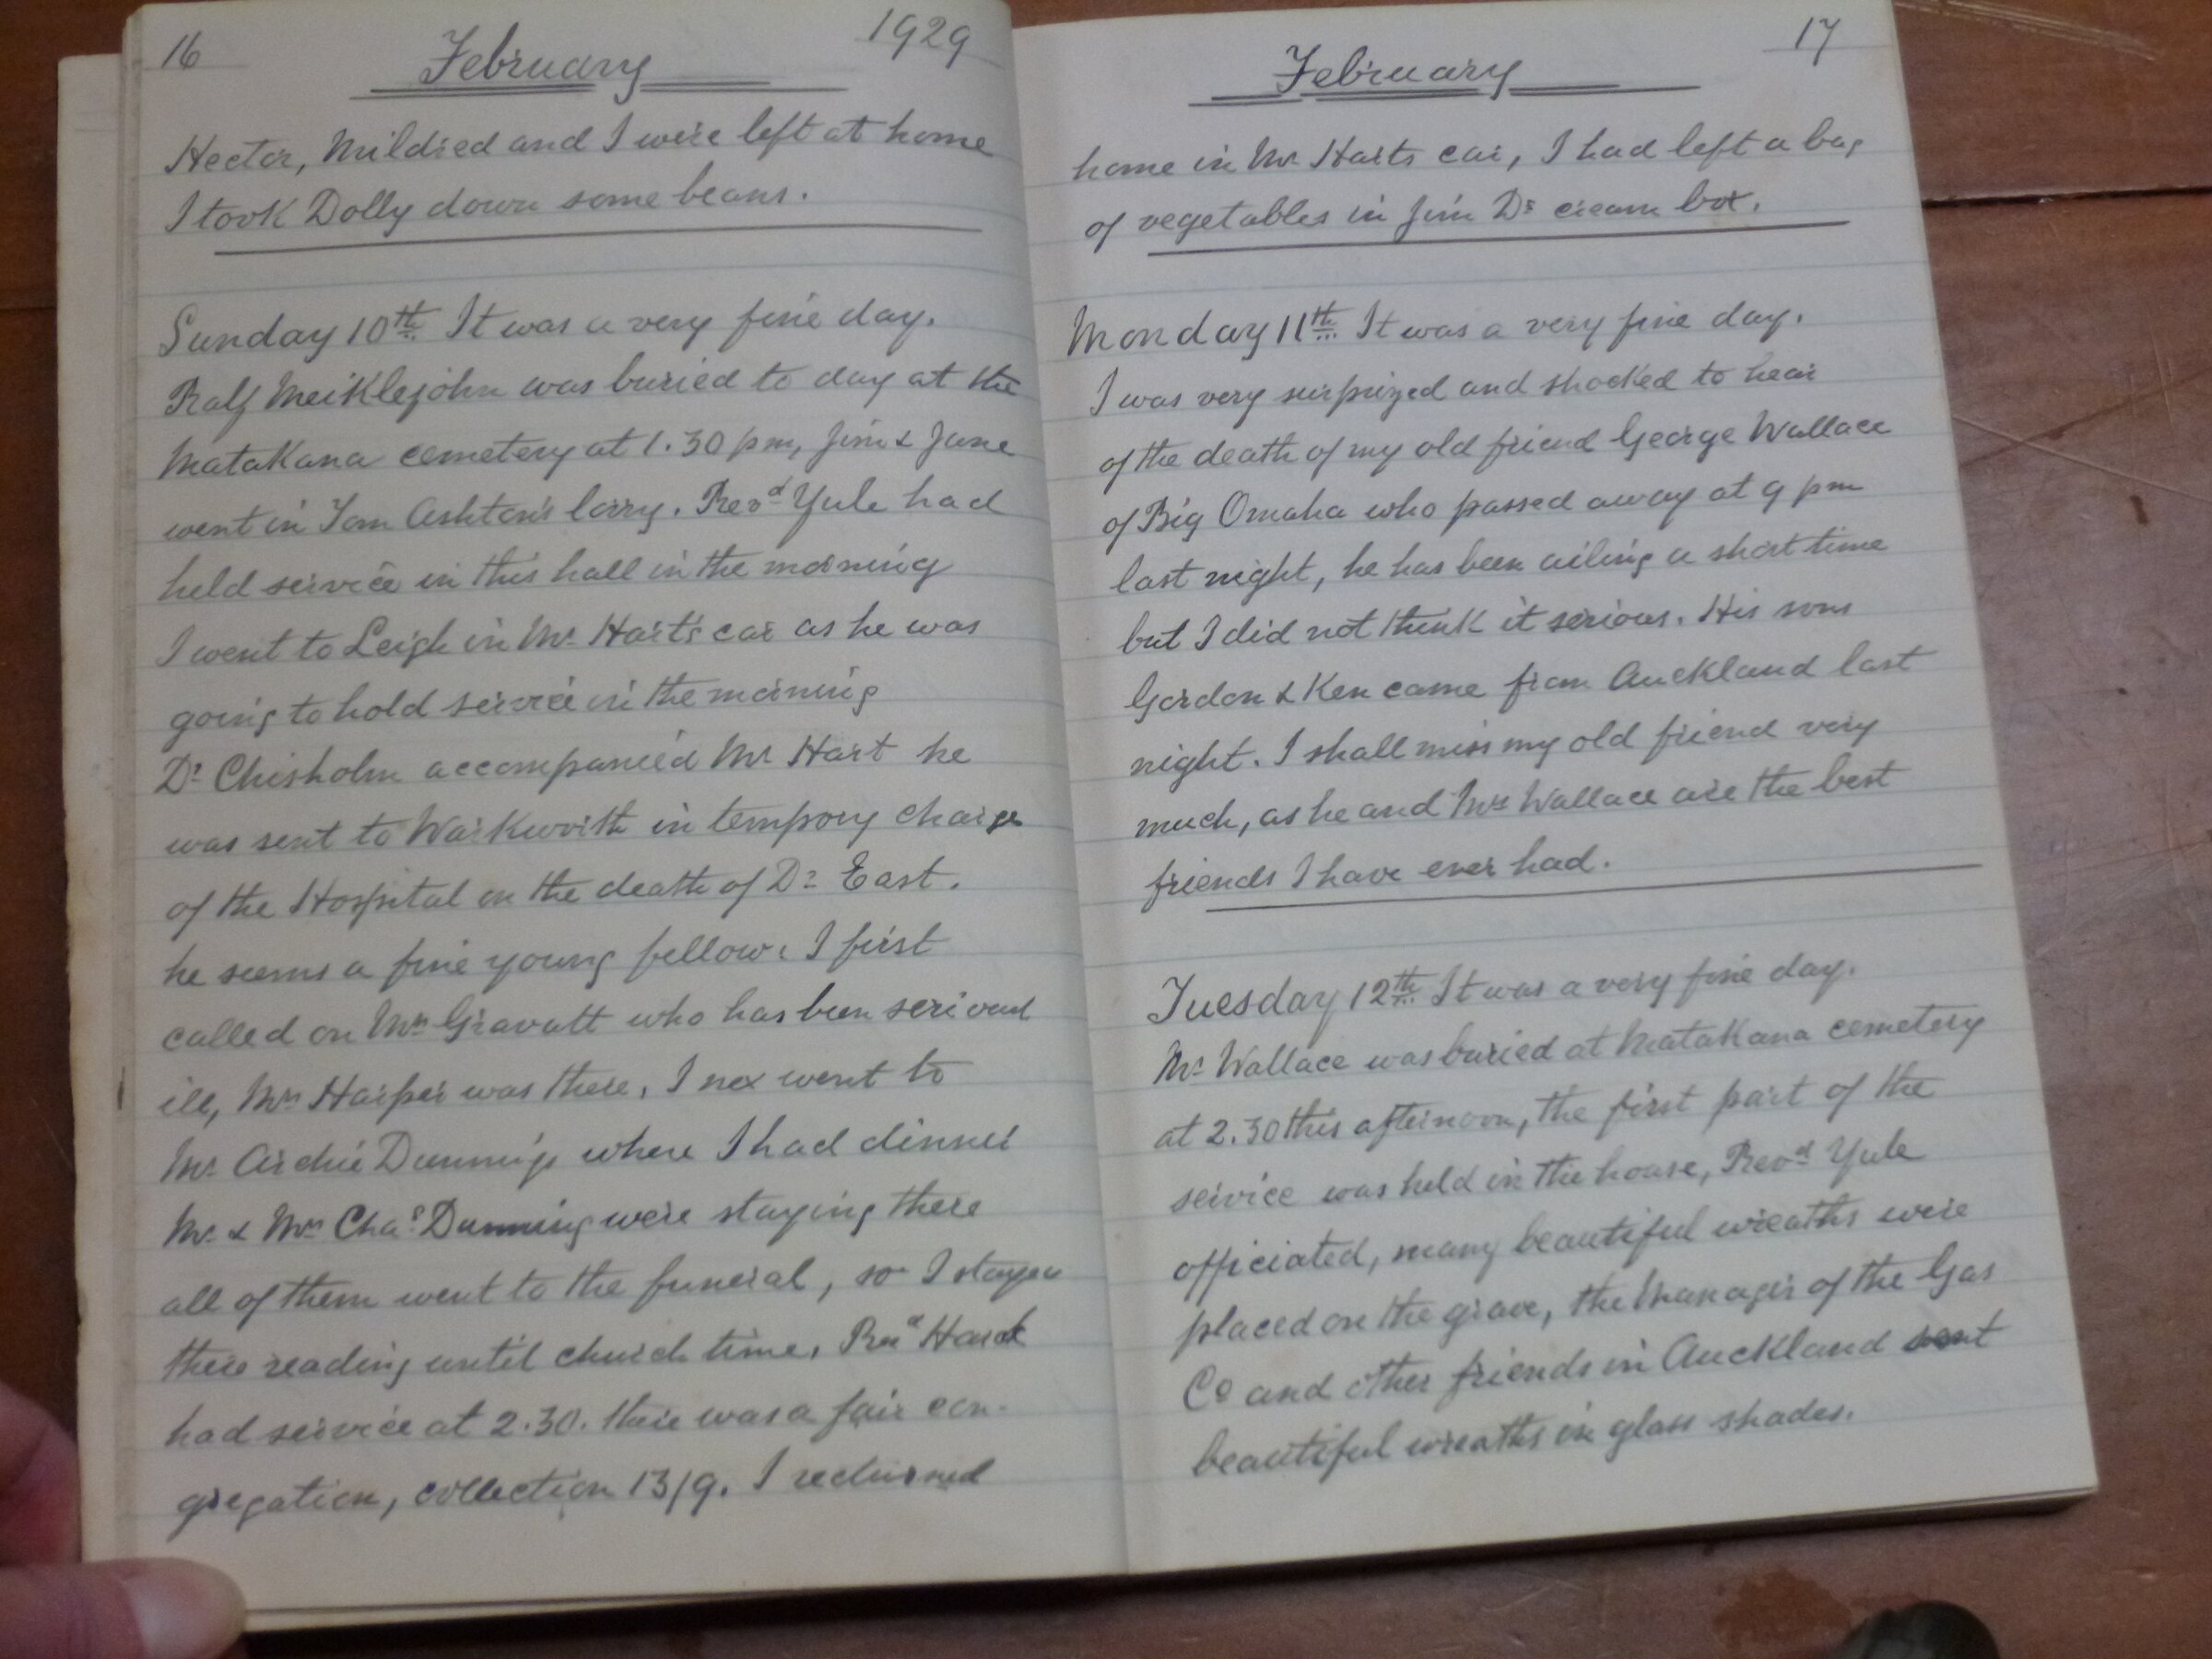 16 February 1929
Hector, Mildred and I were left at home
I took Dolly down some beans.
Sunday 10th It was a very fine day.
Ralf Meiklejohn was buried to day at the
Matakana cemetery at 1.30 pm, Jim & June
went in Tom Ashton's lorry. Revd Yule had
held service in this hall in the morning
I went to Leigh in Mr Hart's car as he was
going to hold service in the morning
Dr Chisholm accompanied Mr Hart he
was sent to Warkworth in tempory charge
of the Hospital on the death of Dr East.
he seems a fine young fellow. I first
called on Mrs Gravatt who has been
ill, Mrs Harper was there, I nex went to
Mr Archie Dunning's where I had dinner
Mr & Mrs Chas Dunning were staying there
all of them went to the funeral, so I stayed
there reading until church time. Revd
had service at 2.30. there was a fair con-
gregation, collection 13/9. I returned
February 17
home in Mr Harts car, I had left a bag
of vegetables in Jim Ds cream box.
Monday 11th It was a very fine day.
I was very surprized and shocked to hear
of the death of my old friend George Wallace
of Big Omaha who passed away at 9 pm
last night, he has been ailing a short time
but I did not think it serious. His sons
Gordon & Ken came from Auckland last
night. I shall miss my old friend very
much, as he and Mrs Wallace are the best
friends I have ever had.
Tuesday 12th It was a very fine day.
Mr Wallace was buried at Matakana cemetery
at 2.30 this afternoon, the first part of the
service was held in the house, Revd Yule
officiated, many beautiful wreaths were
placed on the grave, the Manager of the Gas
Co and other friends in Auckland sent
beautiful wreaths in glass shades.